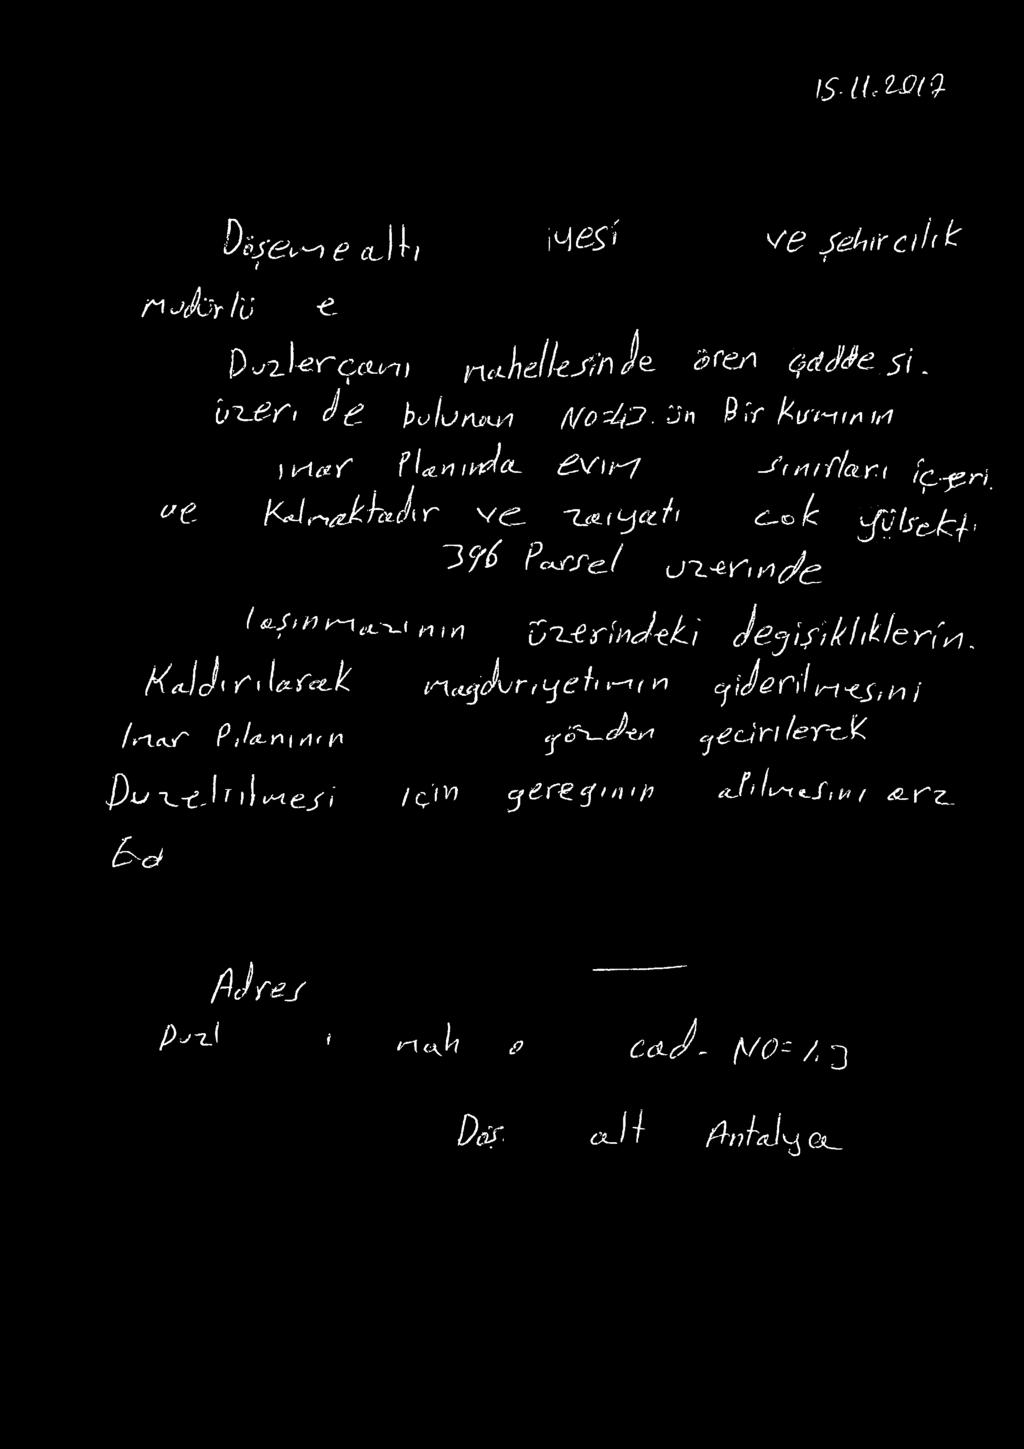 15.11.2017
Döşemealtı iyesi ve şehircilik
müdürlü e
Duzlerçamı mahellesinde ören çaddesi.
üzeri de bulunan NO=43.ün Bir kısmının
imar Planında evim sınırları içeri.
ve Kalmaktadır ve zaiyatı cok yülsekti
396 Parsel uzerinde
taşınmazının üzerindeki degişikliklerin.
Kaldırılarak magduriyetimin giderilmesini
Imar Pılanının gözden gecirilerek
Duzeltilmesi için gereginin arz
Ed
Adres
Duzl i mah o cad. NO=
Döş. alt Antalya